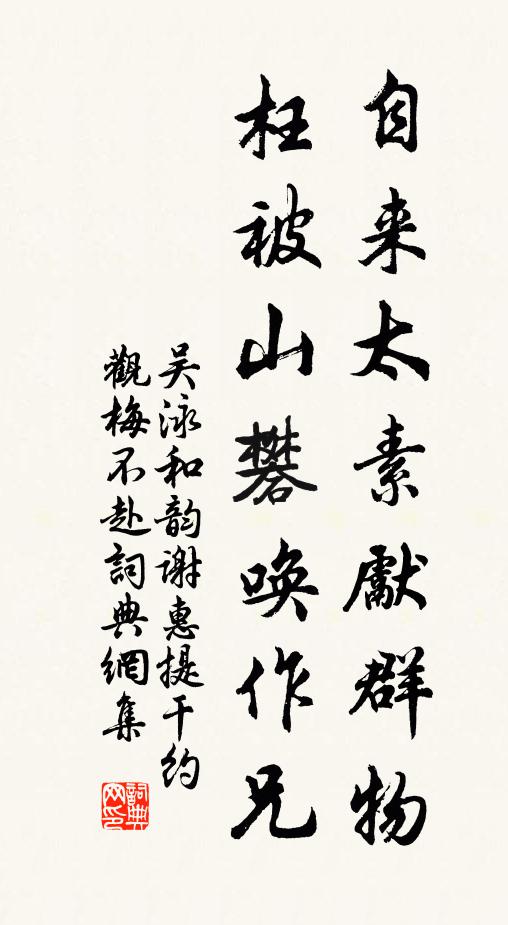 自来太素獻群物
枉被山礬唤作兄
吴泳和韵谢惠提干约
觀梅不赴詞典網集
詞典
网印